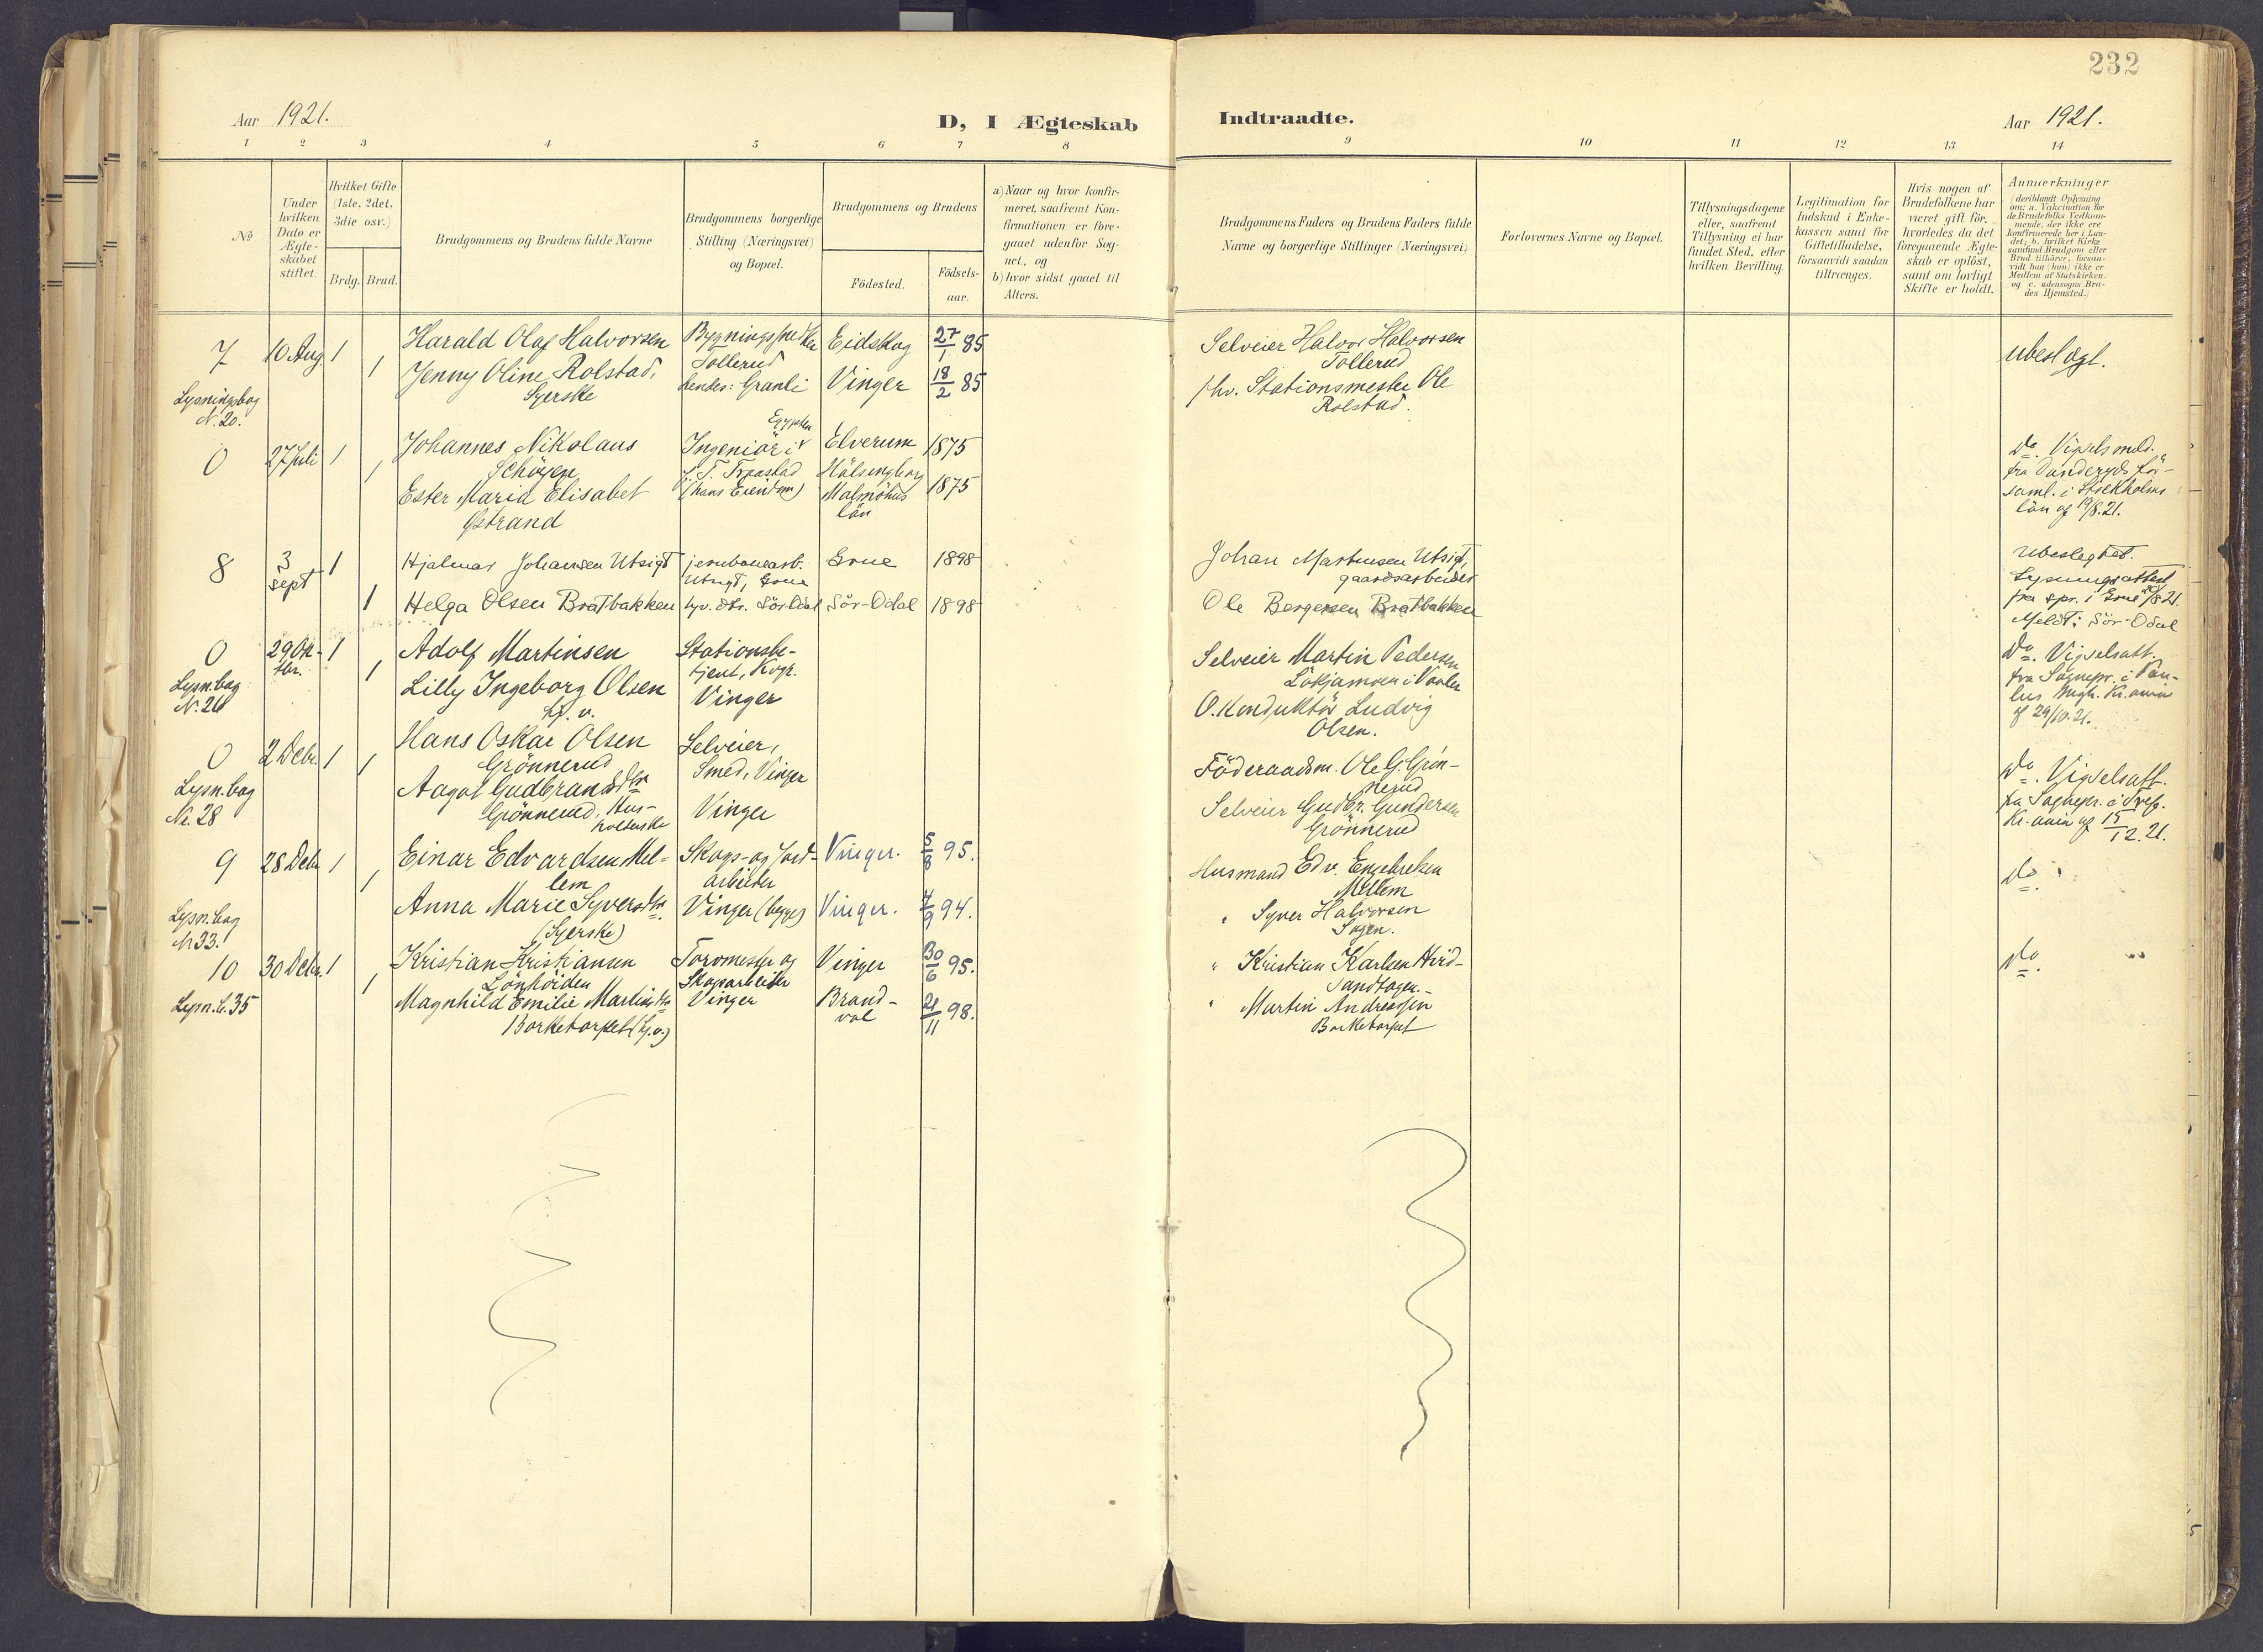 232
Aar 1921.
D, I Ægteskab Indtraadte.
Aar 1921.
1 2 3 4 5 6 7 8 9 10 11 12 13 14
No
Under
hvilken
Dato er
Ægte-
skabet
stiftet.
Hvilket Gifte
(1ste, 2det,
3die osv.)
Brdg. Brud.
Brudgommens og Brudens fulde Navne
Brudgommens borgerlige
Stilling (Næringsvei)
og Bopæl.
Brudgommens og Brudens
Födested.
Födsels-
aar.
a) Naar og hvor konfir-
meret, saafremt Kon-
firmationen er fore-
gaaet udenfor Sog-
net, og
b) hvor sidst gaaet til
Alters.
Brudgommens Faders og Brudens Faders fulde
Navne og borgerlige Stillinger (Næringsvei)
Forlovernes Navne og Bopæl.
Tillysningsdagene
eller, saafremt
Tillysning ei har
fundet Sted, efter
hvilken Bevilling.
Legitimation for
Indskud i Enke-
kassen samt for
Giftetilladelse,
forsaavidt saadan
tiltrænges.
Hvis nogen af
Brudefolkene har
været gift för,
hvorledes da det
foregaaende Ægte-
skab er oplöst,
samt om lovligt
Skifte er holdt.
Anmærkninger
(deriblandt Oplysning
om: a. Vakcination for
de Brudefolks Vedkom-
mende, der ikke ere
konfirmerede her i Lan-
det; b. hvilket Kirke-
samfund Brudgom eller
Brud tilhörer, forsaa-
vidt han (hun) ikke er
Medlem af Statskirken.
og c. udensogns Bru-
des Hjemsted.)
7 10 Aug. 1 Harald Olaf Halvorsen Eidskog 27/1 85 Selveier Halvor Halvorsen ubeslægt.
Tollerud Tollerud
1 Jenny Oline Rolstad, hendes: Granli Vinger 18/2 85 fhv. Stationsmester Ole
Syerske Rolstad.
Lysningsbog
N. 20.
0 27 Juli 1 Johannes Nikolaus Ingeniör i Elverum 1875 Do. Vigselsmeld.
Egypten
Schöyen fra Danderyds för-
1 Ester Maria Elisabet (hans Eiendom) Hälsingborg 1875 saml. i Stockholms
Østrand Malmöhus län af 19/8.21.
län
8 3 sept 1 Hjalmar Johansen Utsigt jernbanearb. Grue 1898 Johan Martinsen Utsigt, Ubeslegtet.
Utsigt, Grue gaardsarbeider Lysningsattest
1 Helga Olsen Bratbakken Sör-Odal 1898 Ole Bergersen Bratbakken fra spr. i Grue
Meldt: Sör-Odal
0 29 Ok- 1 Adolf Martinsen Stationsbe- Selveier Martin Pedersen Do. Vigselsatt.
tbr. tjent, Kvgr. i Vaaler fra Sognepr. i Pau-
Lysn.bog 1 Lilly Ingeborg Olsen Vinger O.Konduktör Ludvig lus Mgh. Kr.ania
N. 26 Hj. v. Olsen. af 29/10.21.
0 2 Debr. 1 Hans Oskar Olsen Selveier, Föderaadsm. Ole G. Grön- Do. Vigselsatt.
Grönnerud Smed, Vinger nerud fra Sognepr. i Tref.
Lysn.bog 1 Aagot Gudbrandsdtr Vinger Selveier Gudbr. Gundersen Kr.ania af 15/12.21.
Nr. 28 Grönnerud, Hus- Grönnerud
holderske
9 28 Debr 1 Einar Edvardsen Mel- Skogs- og Jord- Vinger. 5/8 95. Husmand Edv. Engebretsen Do.
lem arbeider Mellem
Lysn.bog 1 Anna Marie Syversdtr Vinger (begge) Vinger. 7/9 94. " Syver Halvorsen
Nr 33. (Syerske) Sagen.
10 30 Debr. 1 Kristian Kristiansen Torvmester og Vinger 30/6 95. " Kristian Karlsen Hvid- Do.
Lönhöiden Skogsarbeider
Lysn.b. 35 1 Magnhild Emilie Martinsdtr Vinger Brand- 21/11 98. " Martin Andreassen
Borketorpet (Hj.v.) vol Borketorpet